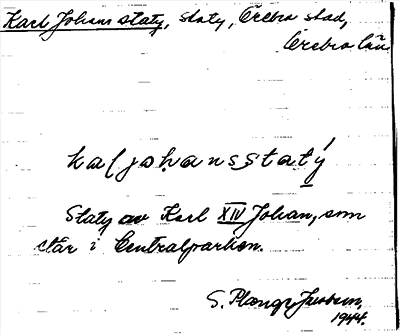 Karl Johans staty, staty, Örebro stad,
Örebro län
kaļjohansstatý
Staty av Karl XIV Johan, som
står i Centralparken.
S.
1944.